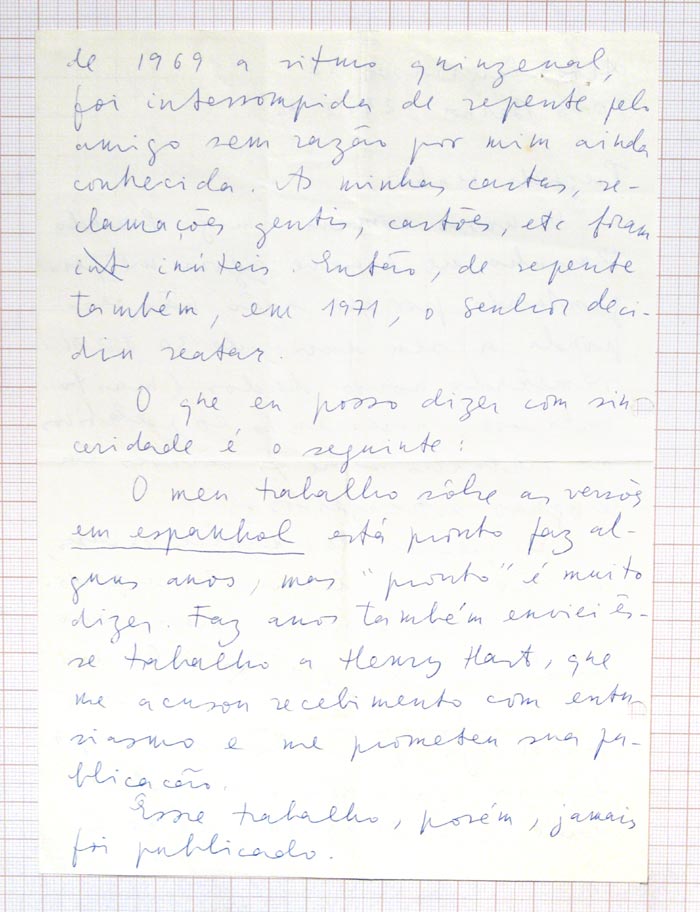 de 1969 a ritmo quinzenal,
foi interrompida de repente pelo
amigo sem razão por mim ainda
conhecida. As minhas cartas, re-
clamações gentis, cartões, etc foram
int inúteis. Então, de repente
também, em 1971, o senhor deci-
diu reatar.
O que eu posso dizer com sin
ceridade é o seguinte:
O meu trabalho sôbre as versões
em espanhol está pronto faz al-
guns anos, mas "pronto" é muito
dizer. Faz anos também enviei ês-
se trabalho a Henry Hart, que
me acusou recebimento com entu
siasmo e me prometeu sua pu-
blicação.
Êsse trabalho, porém, jamais
foi publicado.